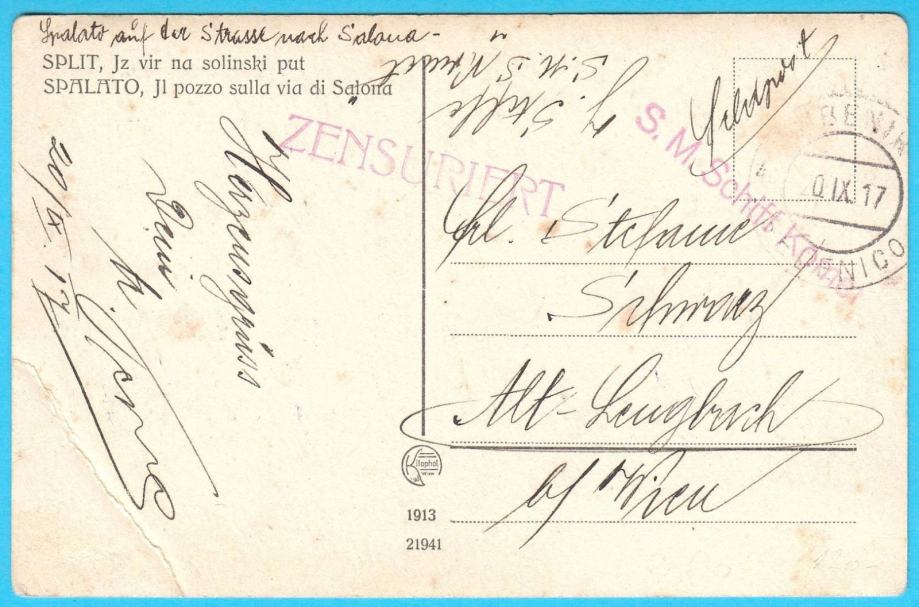 Spalato auf der Strasse nach Salona -
SPLIT, Jz vir na solinski put
SPALATO, Jl pozzo sulla via di Salona
ZENSURIERT
20/IX. 17
Herzensgrüss
Dein
S.M.S.
S. M. Schiff
Feldpost
BENIK
0.IX.17
ENICO
Frl. Stefanie
Schwarz
Alt-Lengbach
b/ Wien
Kilophot
Wien
1913
21941